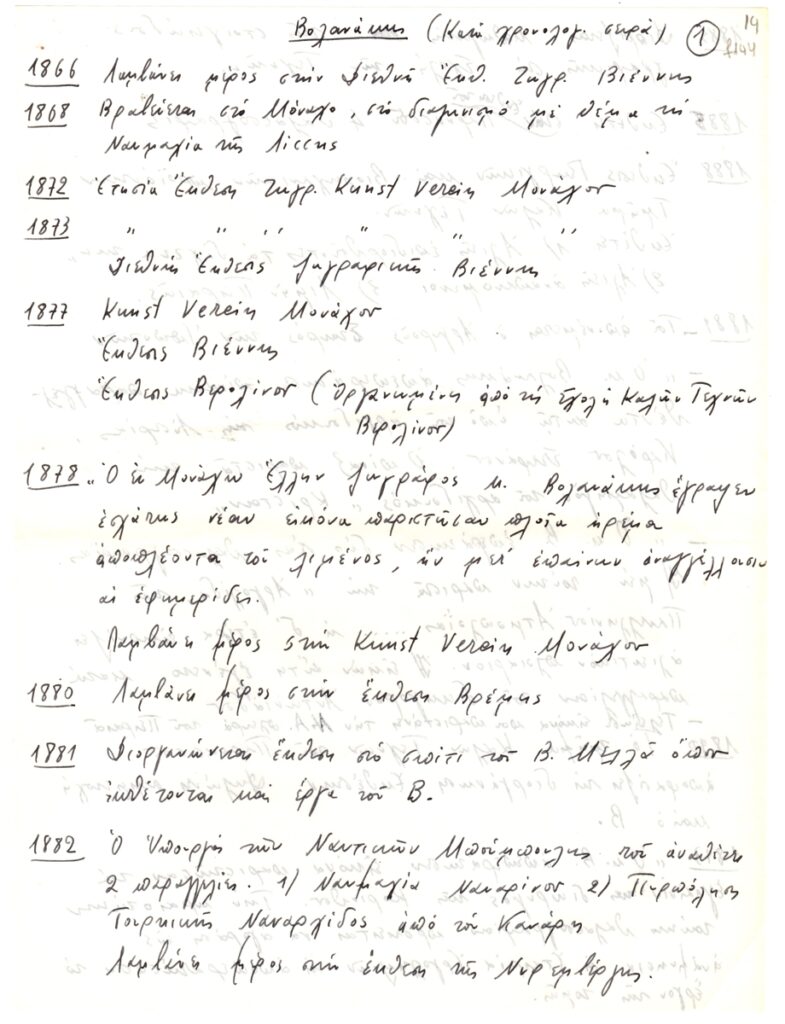 Βολανάκης (Κατά χρονολογ. σειρά) 1 14
1866 Λαμβάνει μέρος στήν Διεθνή Έκθ. Ζωγρ. Βιέννης
1868 Βραβεύεται στό Μόναχο, στό διαγωνισμό με θέμα τή
Ναυμαχία της Λίσσης
1872 Ετησία Έκθεση Ζωγρ. Kunst Verein Μονάχου
1873 " " " " " "
Διεθνής Έκθεσις ζωγραφικής Βιέννης
1877 Kunst Verein Μονάχου
Έκθεσις Βιέννης
Έκθεσις Βερολίνου (Οργανωμένης από τή Σχολή Καλών Τεχνών
Βερολίνου)
1878 "Ο εν Μονάχω Έλλην ζωγράφος κ. Βολανάκης έγραψεν
εσχάτως νέαν εικόνα παριστώσαν πλοία ήρεμα
αποπλέοντα του λιμένος, ην μετ' επαίνων αναγγέλλουσιν
αι εφημερίδες.
Λαμβάνει μέρος στήν Kunst Verein Μονάχου
1880 Λαμβάνει μέρος στήν έκθεση Βρέμης
1881 Διοργανώνεται έκθεση στό σπίτι του Β. Μελλά όπου
εκθέτονται και έργα του Β.
1882 Ο Υπουργός των Ναυτικών Μπούμπουλης του αναθέτει
2 παραγγελίες. 1) Ναυμαχία Ναυαρίνου 2) Πυρπόληση
Τουρκικής Ναυαρχίδος από τον Κανάρη
Λαμβάνει μέρος στήν έκθεση της Νυρεμβέργης.